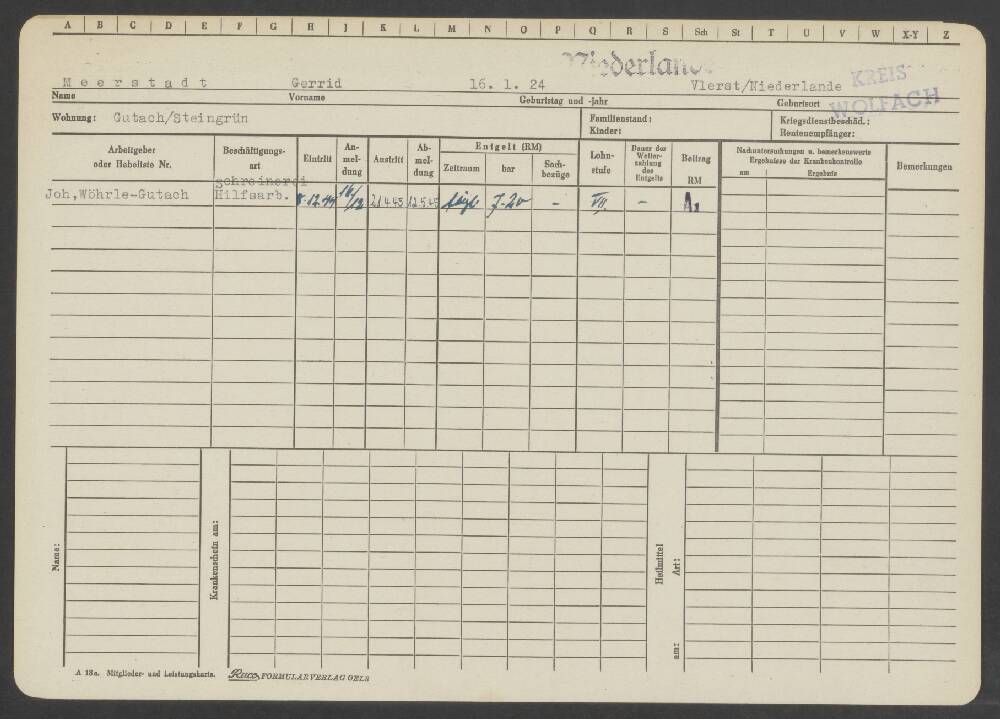 A B C D E F G H J K L M N O P Q R S Sch St T U V W X-Y Z
Niederlande
Meerstadt Gerrid 16. 1. 24 Vlerst/Niederlande
KREIS WOLFACH
Name Vorname Geburtstag und -jahr Geburtsort
Wohnung: Gutach/Steingrün
Familienstand:
Kinder:
Kriegsdienstbeschäd.:
Rentenempfänger:
Arbeitgeber oder Hebeliste Nr.
Beschäftigungs-art
Eintritt
An-mel-dung
Austritt
Ab-mel-dung
Entgelt (RM)
Zeitraum
bar
Sach-bezüge
Lohn-stufe
Dauer der Weiter-zahlung des Entgelts
Beitrag RM
Nachuntersuchungen u. bemerkenswerte Ergebnisse der Krankenkontrolle
am Ergebnis
Bemerkungen
Schreinerei
Joh,Wöhrle-Gutach Hilfsarb. 8.12.44 16/12 21.4.45 12.5.45 tägl 7-20 - VII. - A1
Name:
Krankenschein am:
Heilmittel
Art:
am:
A 13a. Mitglieder- und Leistungskarte. Ruco, FORMULARVERLAG GELS